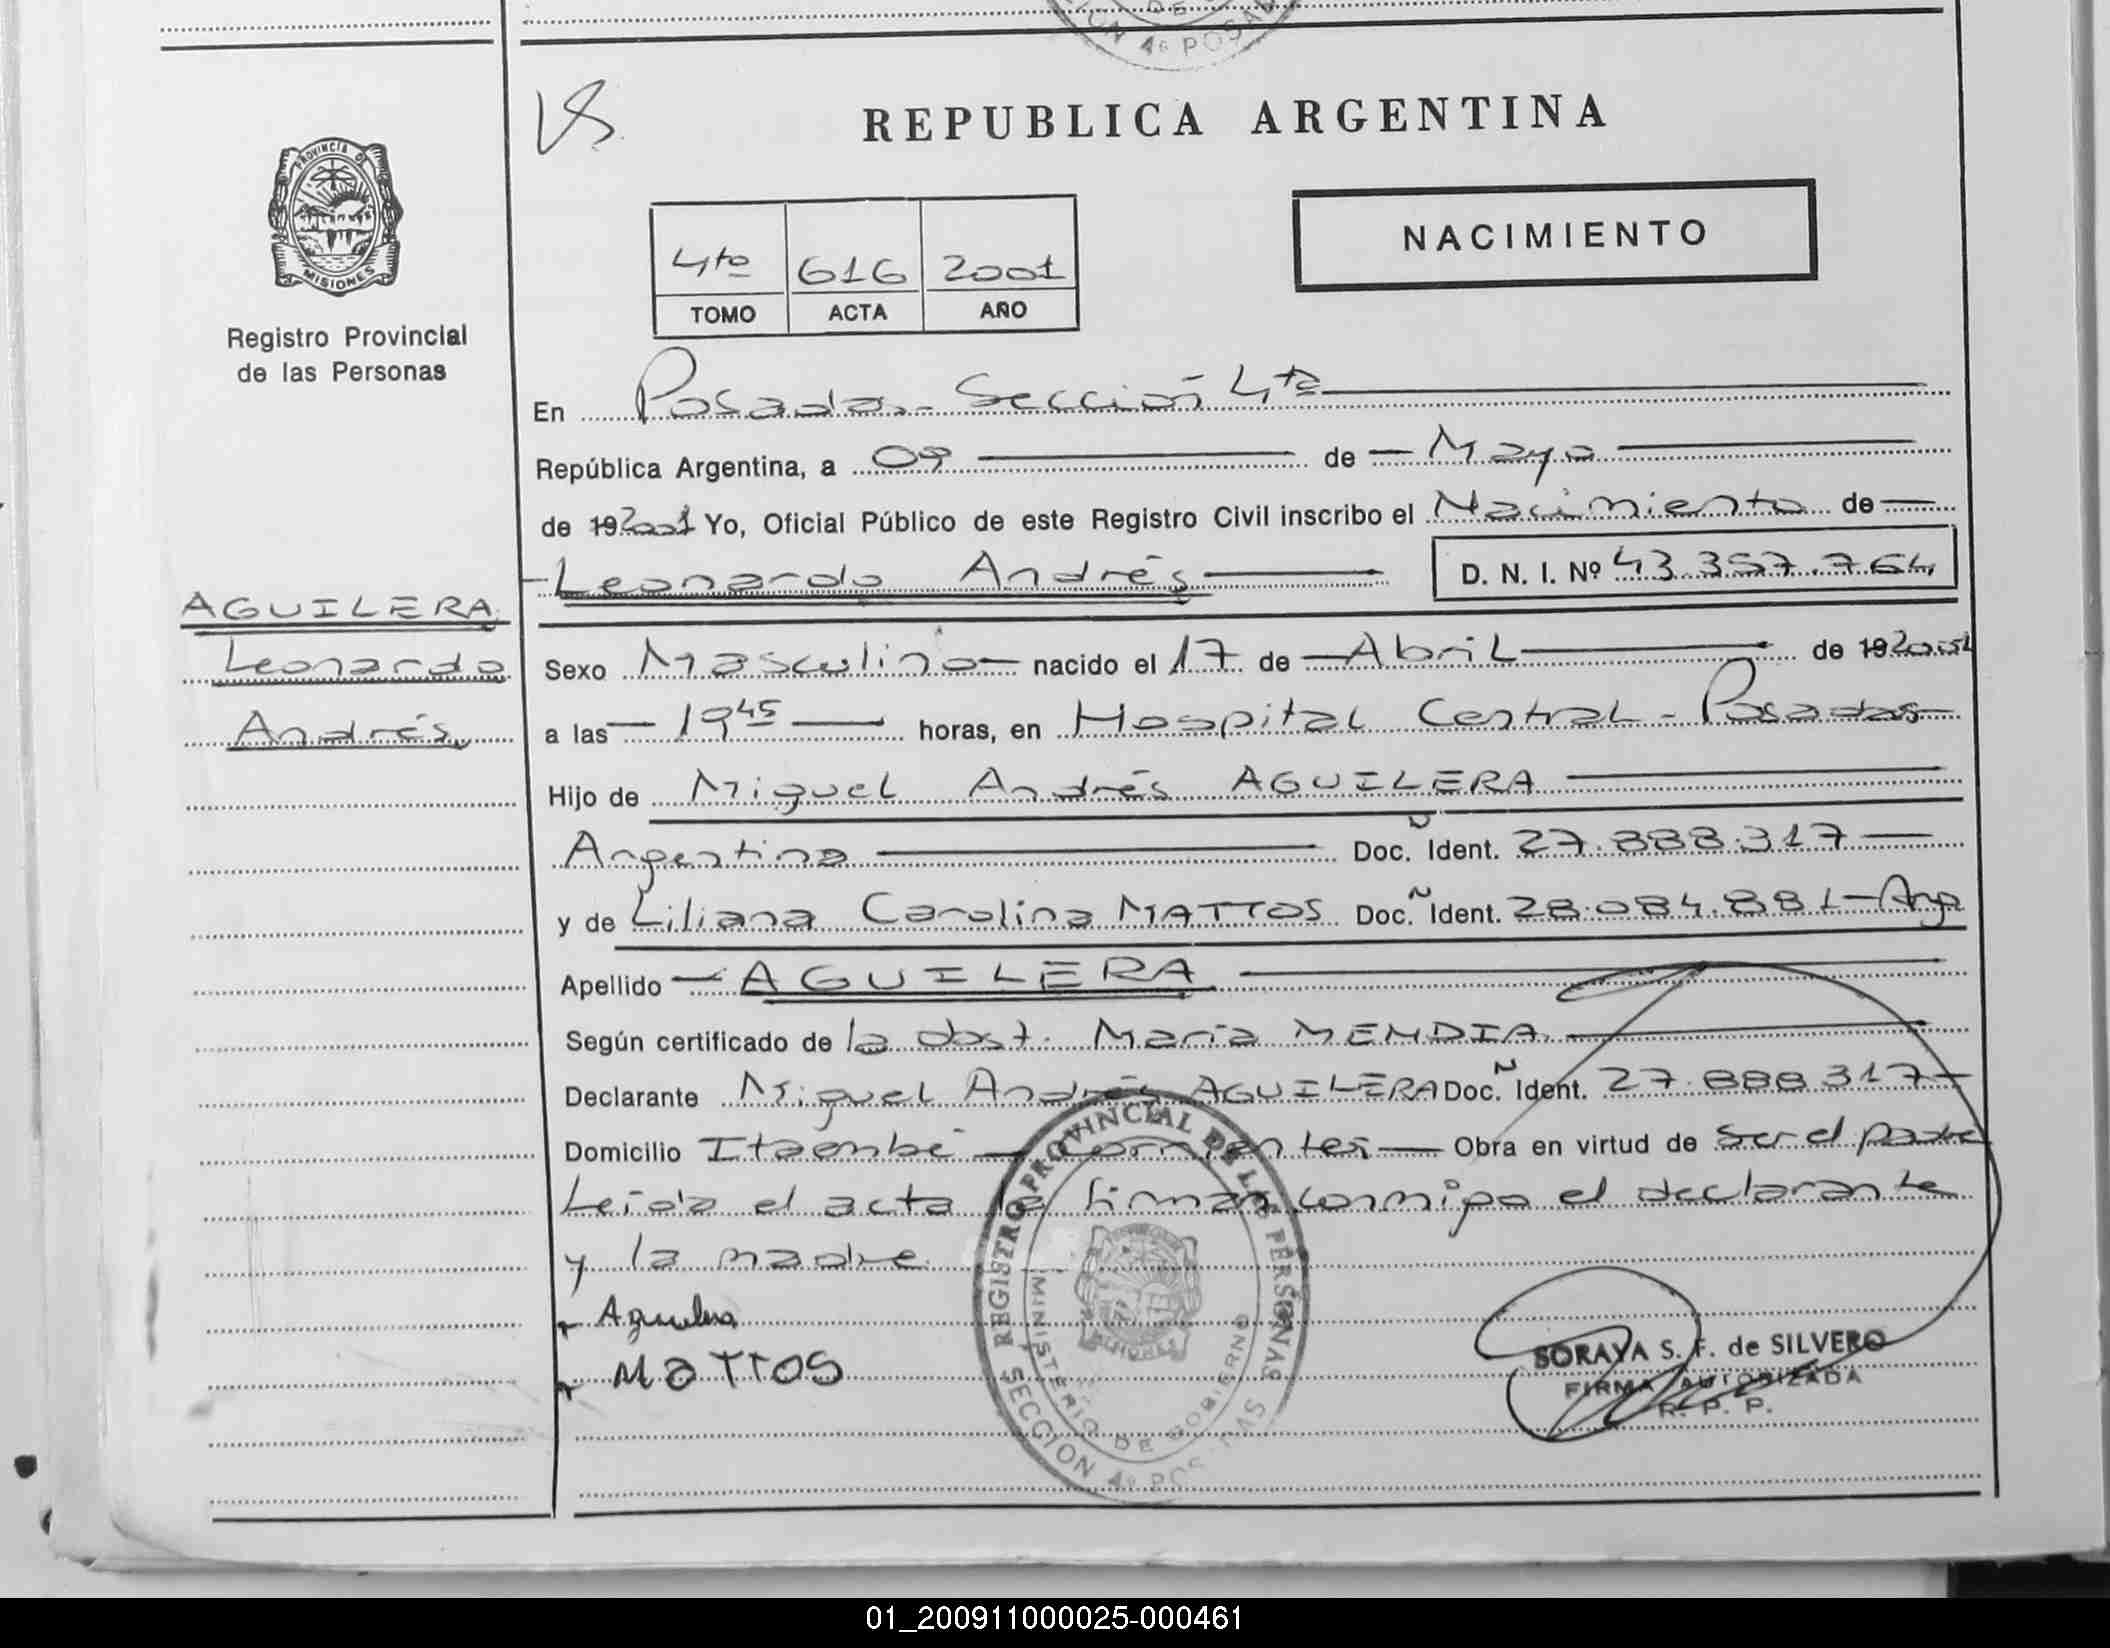 DE
CION 4º POSADAS
VS
REPUBLICA ARGENTINA
PROVINCIA DE
MISIONES
Registro Provincial
de las Personas
4to 616 2001
TOMO ACTA AÑO
NACIMIENTO
En Posadas - Sección 4ta
República Argentina, a 09 de Mayo
de 192001 Yo, Oficial Público de este Registro Civil inscribo el Nacimiento de
Leonardo Andrés D. N. I. Nº 43.357.764
AGUILERA
Leonardo
Andrés
Sexo Masculino nacido el 17 de Abril de 192001
a las 19 45 horas, en Hospital Central - Posadas
Hijo de Miguel Andrés AGUILERA
Argentina Doc. Ñ Ident. 27.888.317
y de Liliana Carolina MATTOS Doc. Ñ Ident. 28.084.881 - Arg
Apellido AGUILERA
Según certificado de la obst. María MENDIA
Declarante Miguel Andrés AGUILERA Doc. Ñ Ident. 27.888.317
Domicilio Itaembé - Corrientes Obra en virtud de ser el padre
Leída el acta la firman conmigo el declarante
y la madre.
Aguilera
MATTOS
REGISTRO PROVINCIAL DE LAS PERSONAS
MINISTERIO DE GOBIERNO
MISIONES
SECCION 4º POSADAS
SORAYA S. F. de SILVERO
FIRMA AUTORIZADA
R. P. P.
01_200911000025-000461